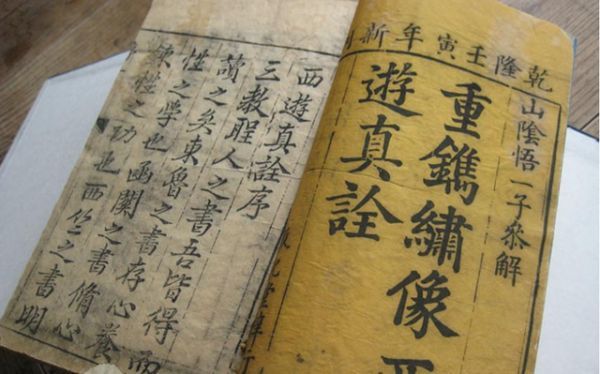 乾隆壬寅年新
山陰悟一子叅解
重鐫繡像西
遊真詮
西遊真詮序
三教聖人之書吾皆得而
讀之矣東魯之書存心養
性之學也函關之書脩心
煉性之功也西竺之書明